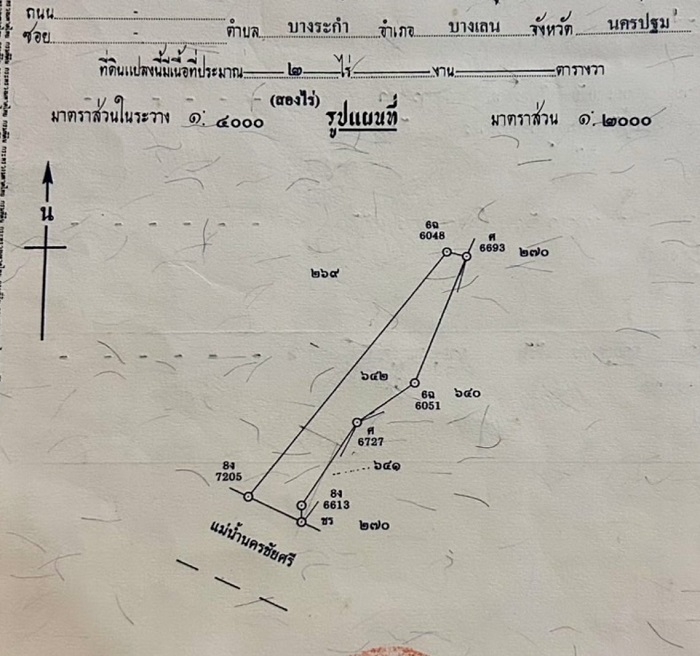 ถนน -
ซอย - ตำบล บางระกำ อำเภอ บางเลน จังหวัด นครปฐม
ที่ดินแปลงนี้มีเนื้อที่ประมาณ ๒ ไร่ งาน ตารางวา
(สองไร่)
มาตราส่วนในระวาง ๑:๔๐๐๐ รูปแผนที่ มาตราส่วน ๑:๒๐๐๐
น
6ฉ
6048
ศ
6693
๒๗๐
๒๖๙
๖๔๒
6ฉ
6051
๖๔๐
ศ
6727
๖๔๑
8ง
7205
8ง
6613
ชร
๒๗๐
แม่น้ำนครชัยศรี